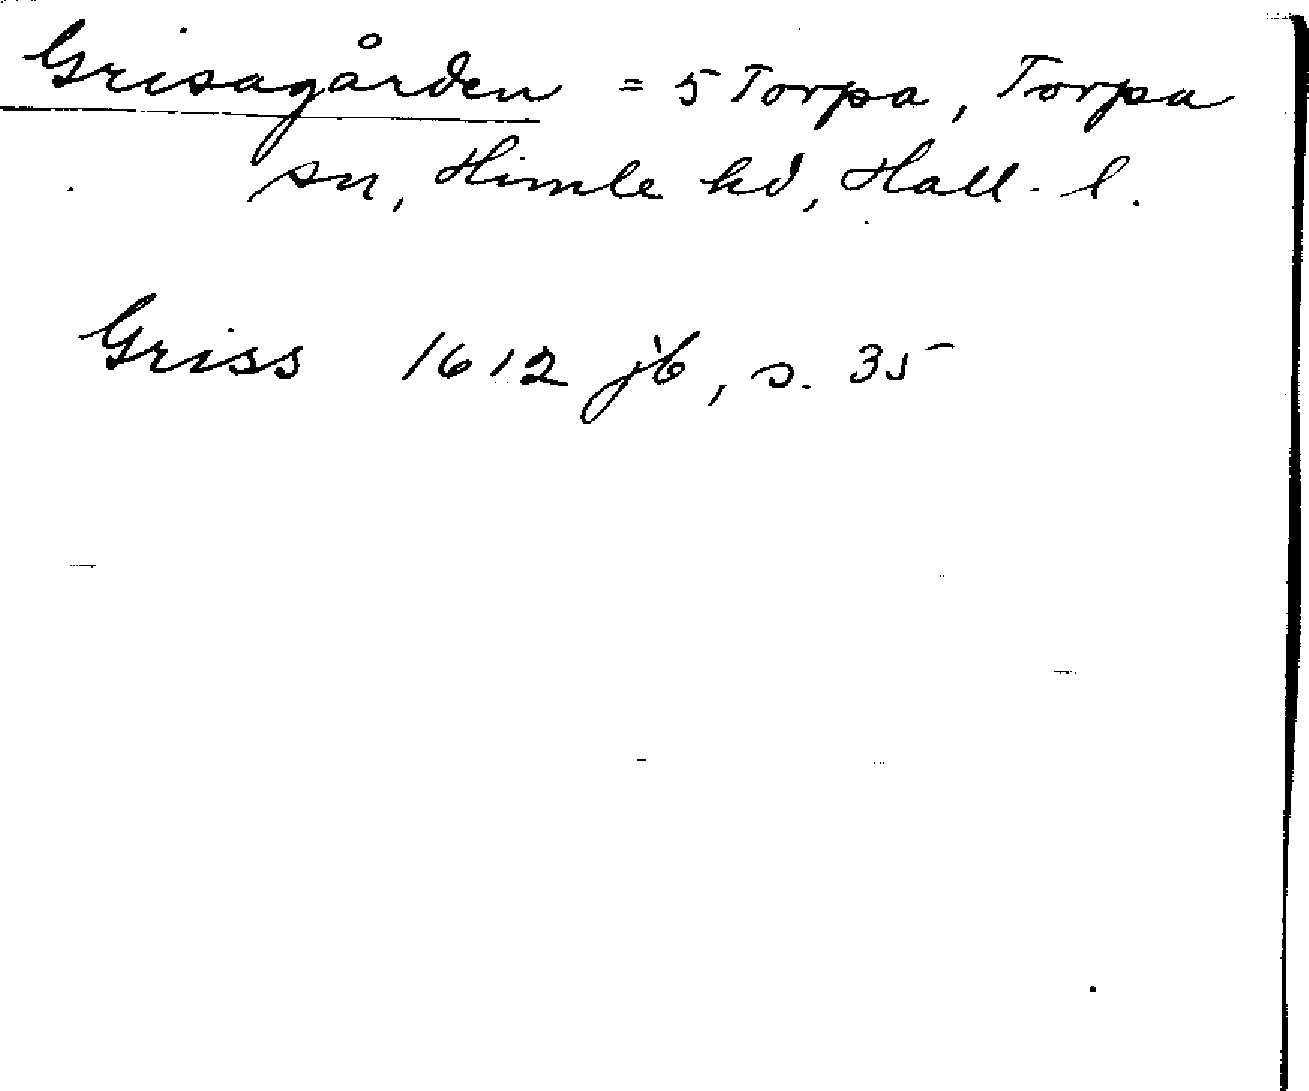 Grisagården = 5 Torpa, Torpa
sn, Himle hd, Hall. l.
Griss 1612 jb, s. 35